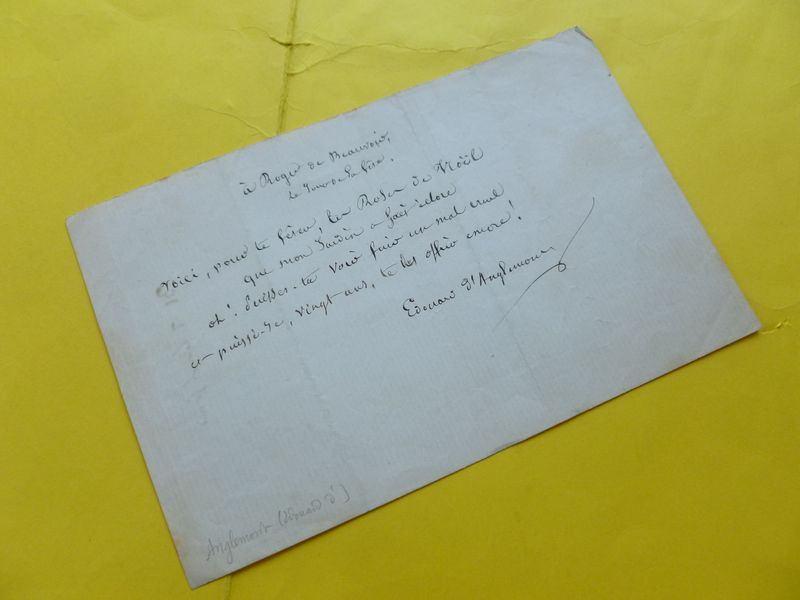 à Roger de Beauvoir,
le jour de sa fête.
Voici, pour ta fête, les Roses de Noël
que mon Jardin a fait éclore
oh! Puisses-tu voir fuir un mal cruel
et puissé-je, vingt ans, te les offrir encore!
Edouard d'Anglemont
Anglemont (Edouard d')